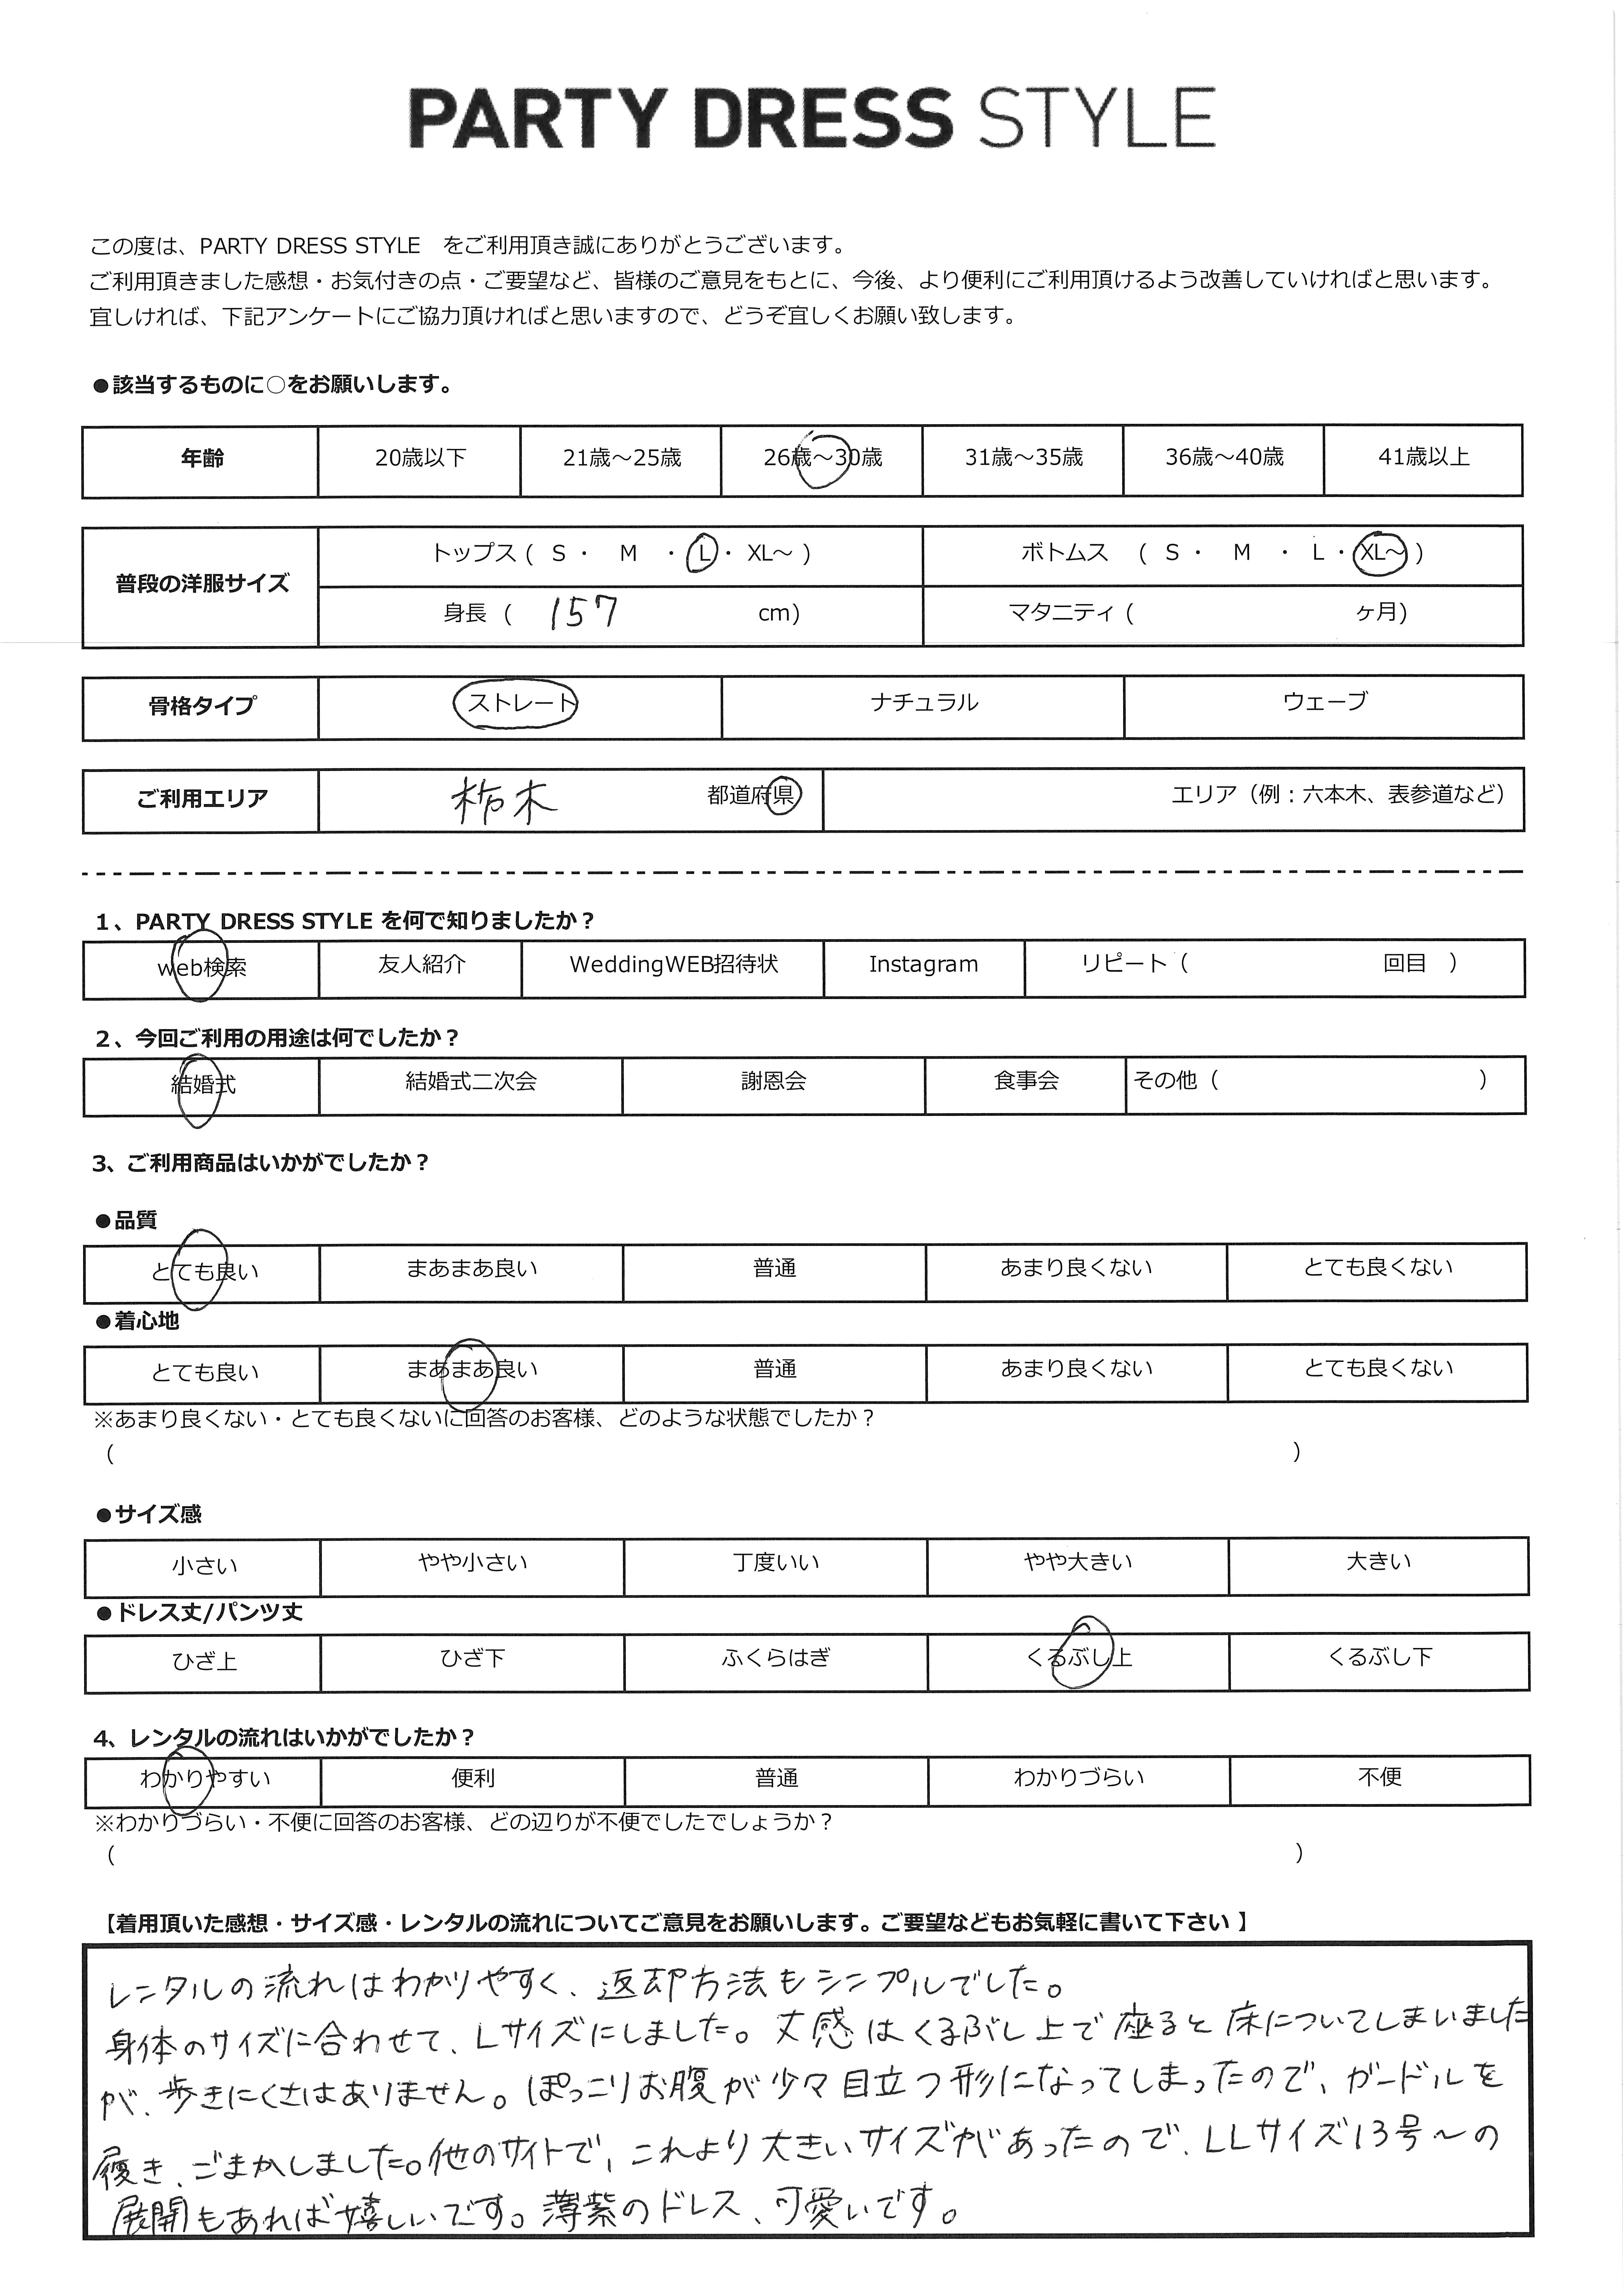 PARTY DRESS STYLE
この度は、PARTY DRESS STYLE　をご利用頂き誠にありがとうございます。
ご利用頂きました感想・お気付きの点・ご要望など、皆様のご意見をもとに、今後、より便利にご利用頂けるよう改善していければと思います。
宜しければ、下記アンケートにご協力頂ければと思いますので、どうぞ宜しくお願い致します。
●該当するものに○をお願いします。
年齢 20歳以下 21歳～25歳 26歳～30歳 31歳～35歳 36歳～40歳 41歳以上
普段の洋服サイズ トップス ( S ・ M ・ L ・ XL～ ) ボトムス ( S ・ M ・ L ・ XL～ )
身長 ( 157 cm) マタニティ ( ヶ月)
骨格タイプ ストレート ナチュラル ウェーブ
ご利用エリア 栃木 都道府県 エリア（例：六本木、表参道など）
1、PARTY DRESS STYLE を何で知りましたか？
web検索 友人紹介 WeddingWEB招待状 Instagram リピート（ 回目 ）
2、今回ご利用の用途は何でしたか？
結婚式 結婚式二次会 謝恩会 食事会 その他（ ）
3、ご利用商品はいかがでしたか？
●品質
とても良い まあまあ良い 普通 あまり良くない とても良くない
●着心地
とても良い まあまあ良い 普通 あまり良くない とても良くない
※あまり良くない・とても良くないに回答のお客様、どのような状態でしたか？
（ ）
●サイズ感
小さい やや小さい 丁度いい やや大きい 大きい
●ドレス丈/パンツ丈
ひざ上 ひざ下 ふくらはぎ くるぶし上 くるぶし下
4、レンタルの流れはいかがでしたか？
わかりやすい 便利 普通 わかりづらい 不便
※わかりづらい・不便に回答のお客様、どの辺りが不便でしたでしょうか？
（ ）
【着用頂いた感想・サイズ感・レンタルの流れについてご意見をお願いします。ご要望などもお気軽に書いて下さい 】
レンタルの流れはわかりやすく、返却方法もシンプルでした。
身体のサイズに合わせて、Lサイズにしました。丈感はくるぶし上で座ると床についてしまいました
が、歩きにくさはありません。ぽっこりお腹が少々目立つ形になってしまったので、ガードルを
履き、ごまかしました。他のサイトで、これより大きいサイズがあったので、LLサイズ13号～の
展開もあれば嬉しいです。薄紫のドレス、可愛いです。